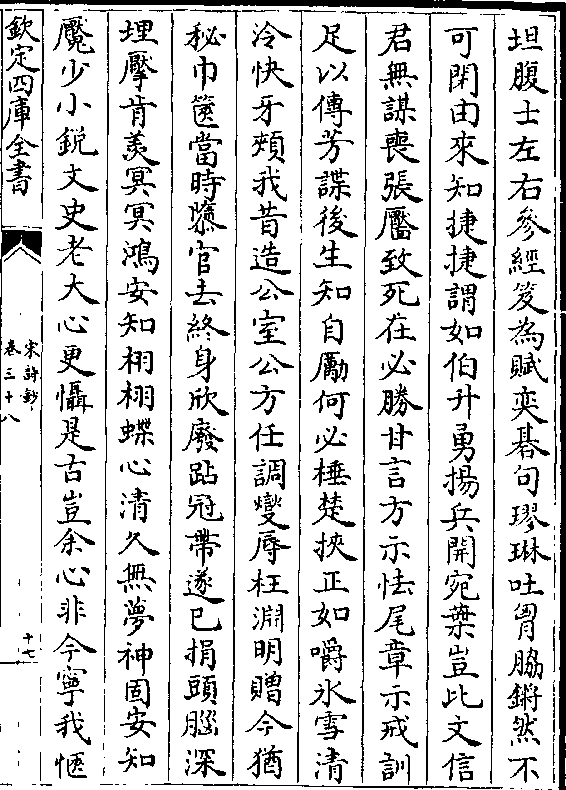 坦腹士左右參經笈為賦奕碁句璆琳吐胷脇鏘然不
可閑由來知捷捷謂如伯升勇揚兵開宛葉豈比文信
君無謀喪張黶致死在必勝甘言方示怯尾章示戒訓
足以傳芳諜後生知自勵何必棰楚挾正如嚼氷雪清
泠快牙頰我昔造公室公方任調燮辱枉淵明贈今猶
秘巾篋當時隳官去終身欣廢跕冠帶遂已捐頭腦深
埋擪肯羨冥冥鴻安知栩栩蝶心清久無夢神固安知
魘少小鋭文史老大心更懾是古豈余心非今寧我愜
欽定四庫全書
宋詩鈔
卷三十八
十七